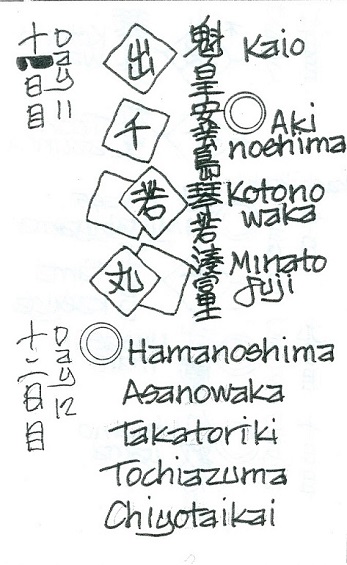 十一日目
Day 11
出
魁皇
Kaio
千
安芸島
Aki
noshima
若
琴若
Kotono
waka
丸
湊富士
Minato
fuji
十二日目
Day 12
Hamanoshima
Asanowaka
Takatoriki
Tochiazuma
Chiyotaikai